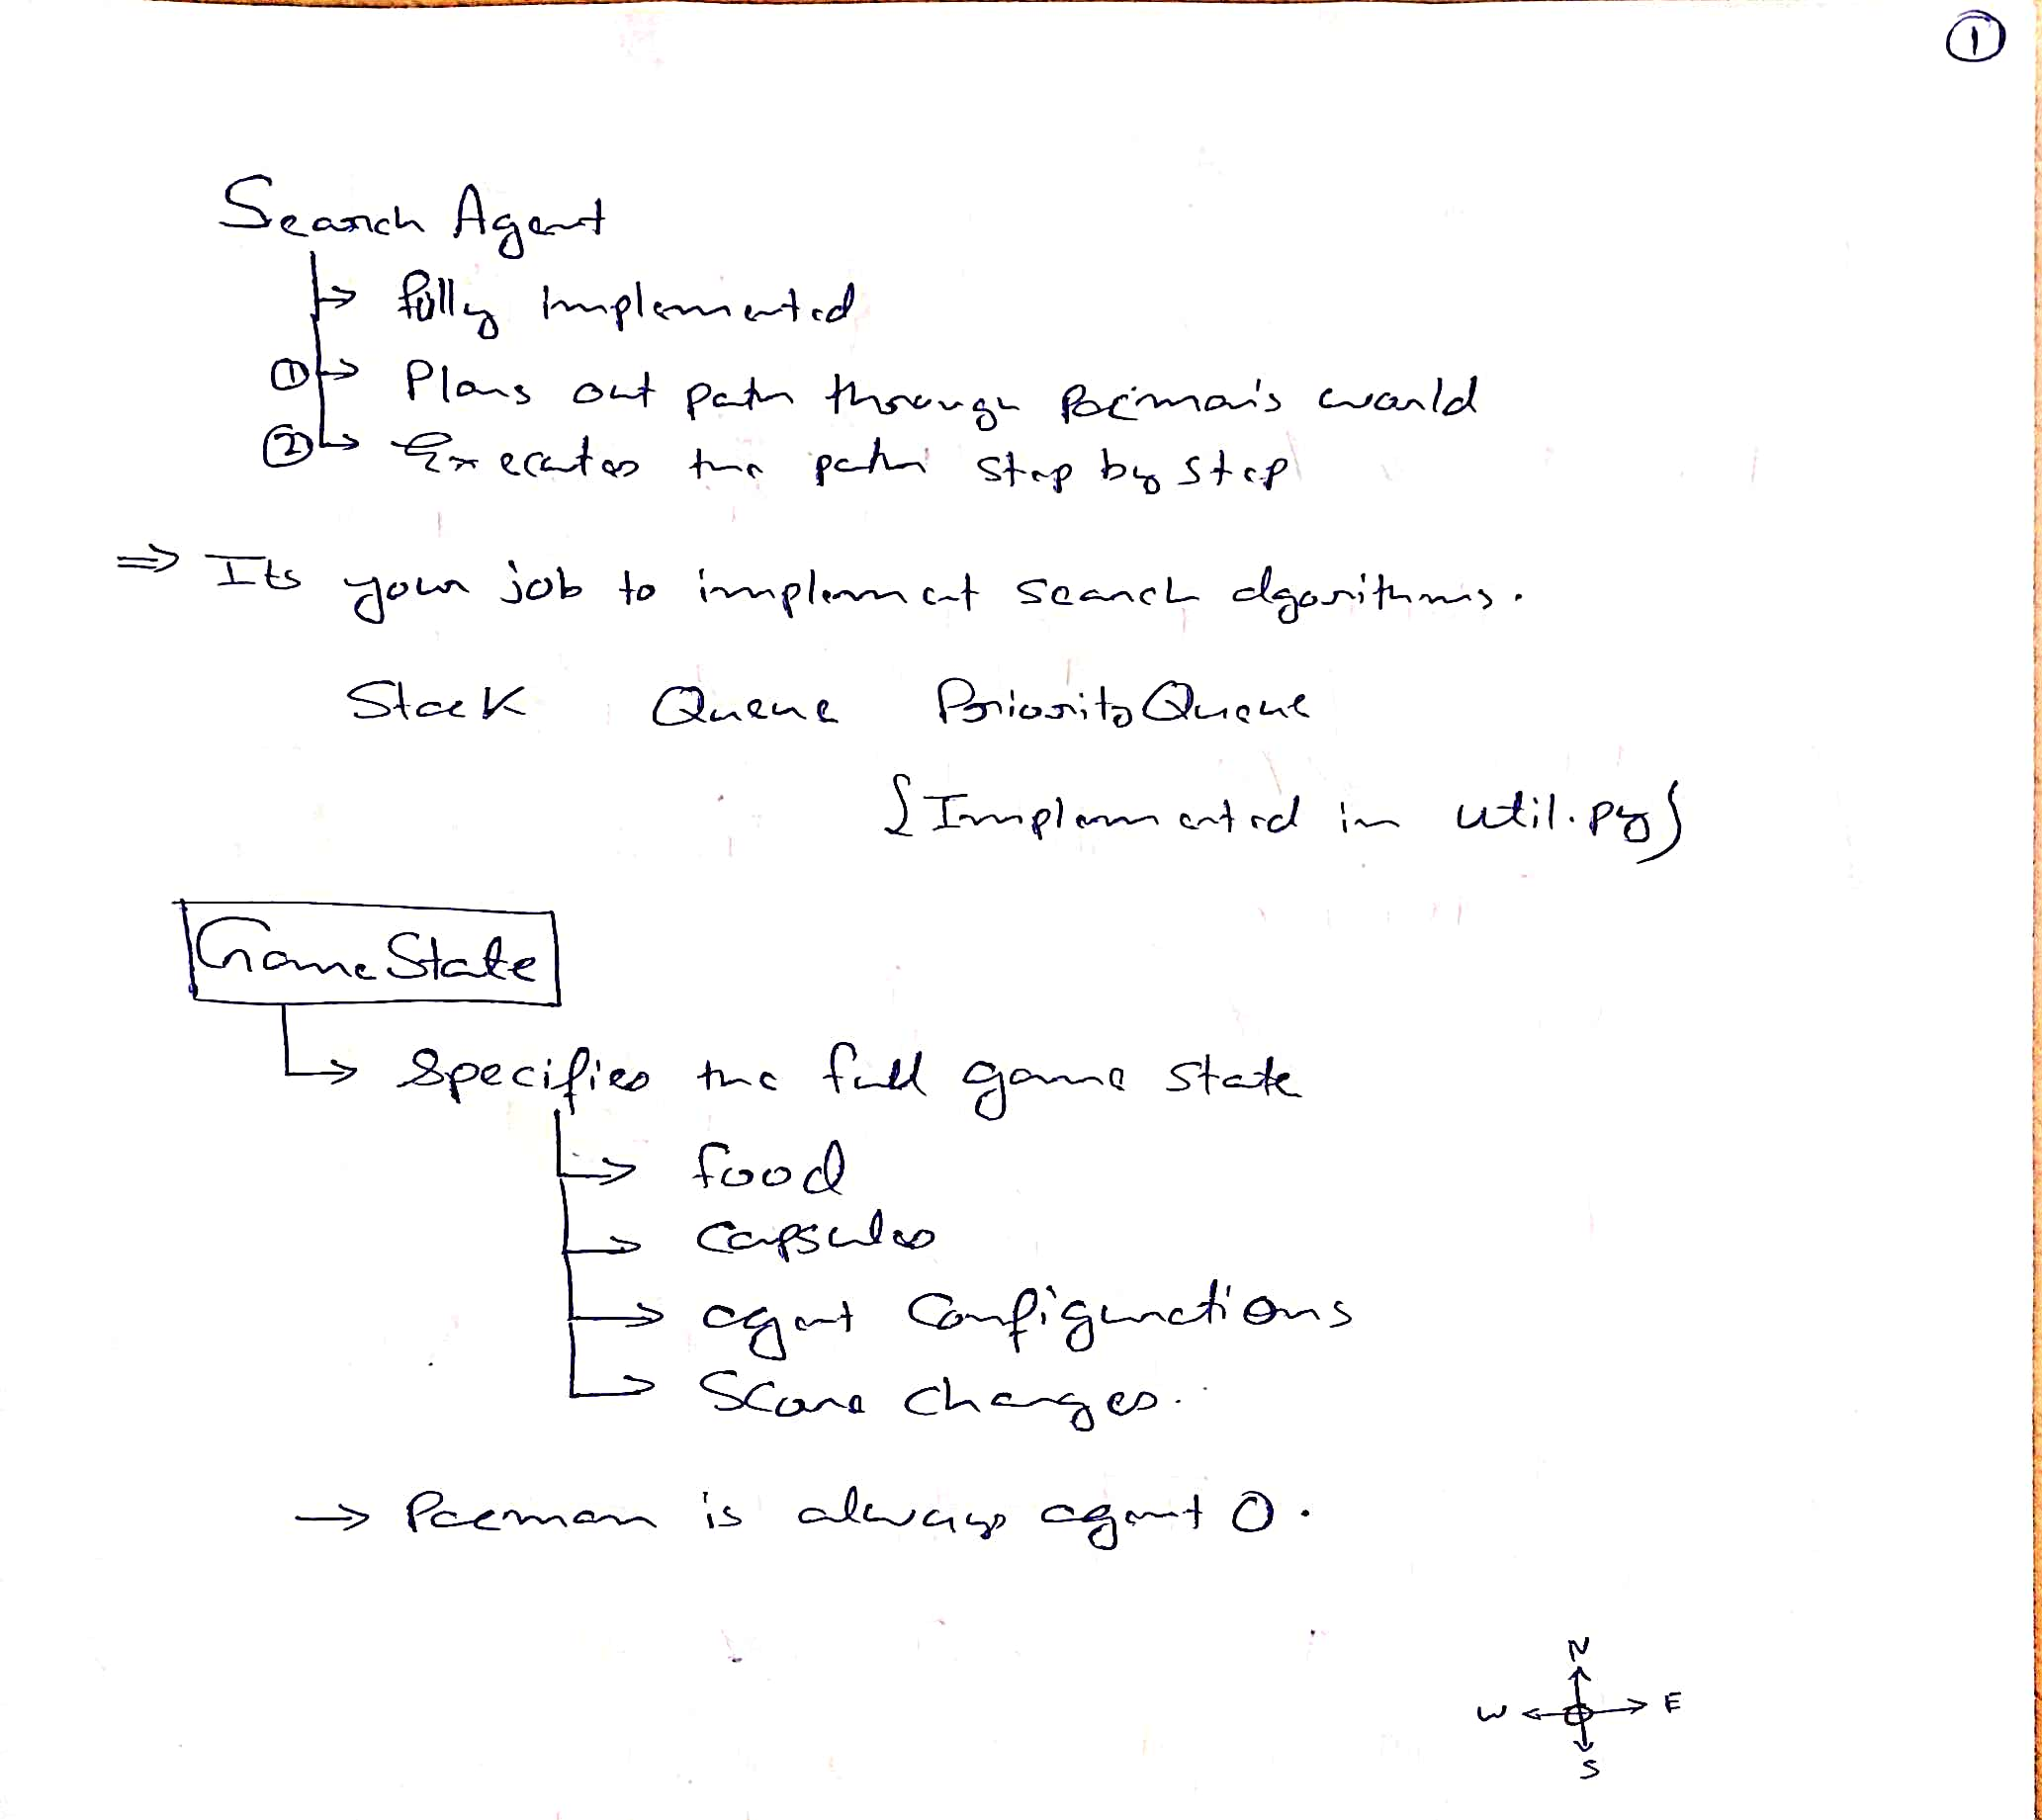 ①
Search Agent
fully Implemented
① Plans out path through Pacman's world
② Executes the path step by step
⇒ Its your job to implement search algorithms.
Stack Queue Priority Queue
{Implemented in util.py}
GameState
Specifies the full game state
food
capsules
agent configurations
Score changes.
→ Pacman is always agent 0.
N
W E
S